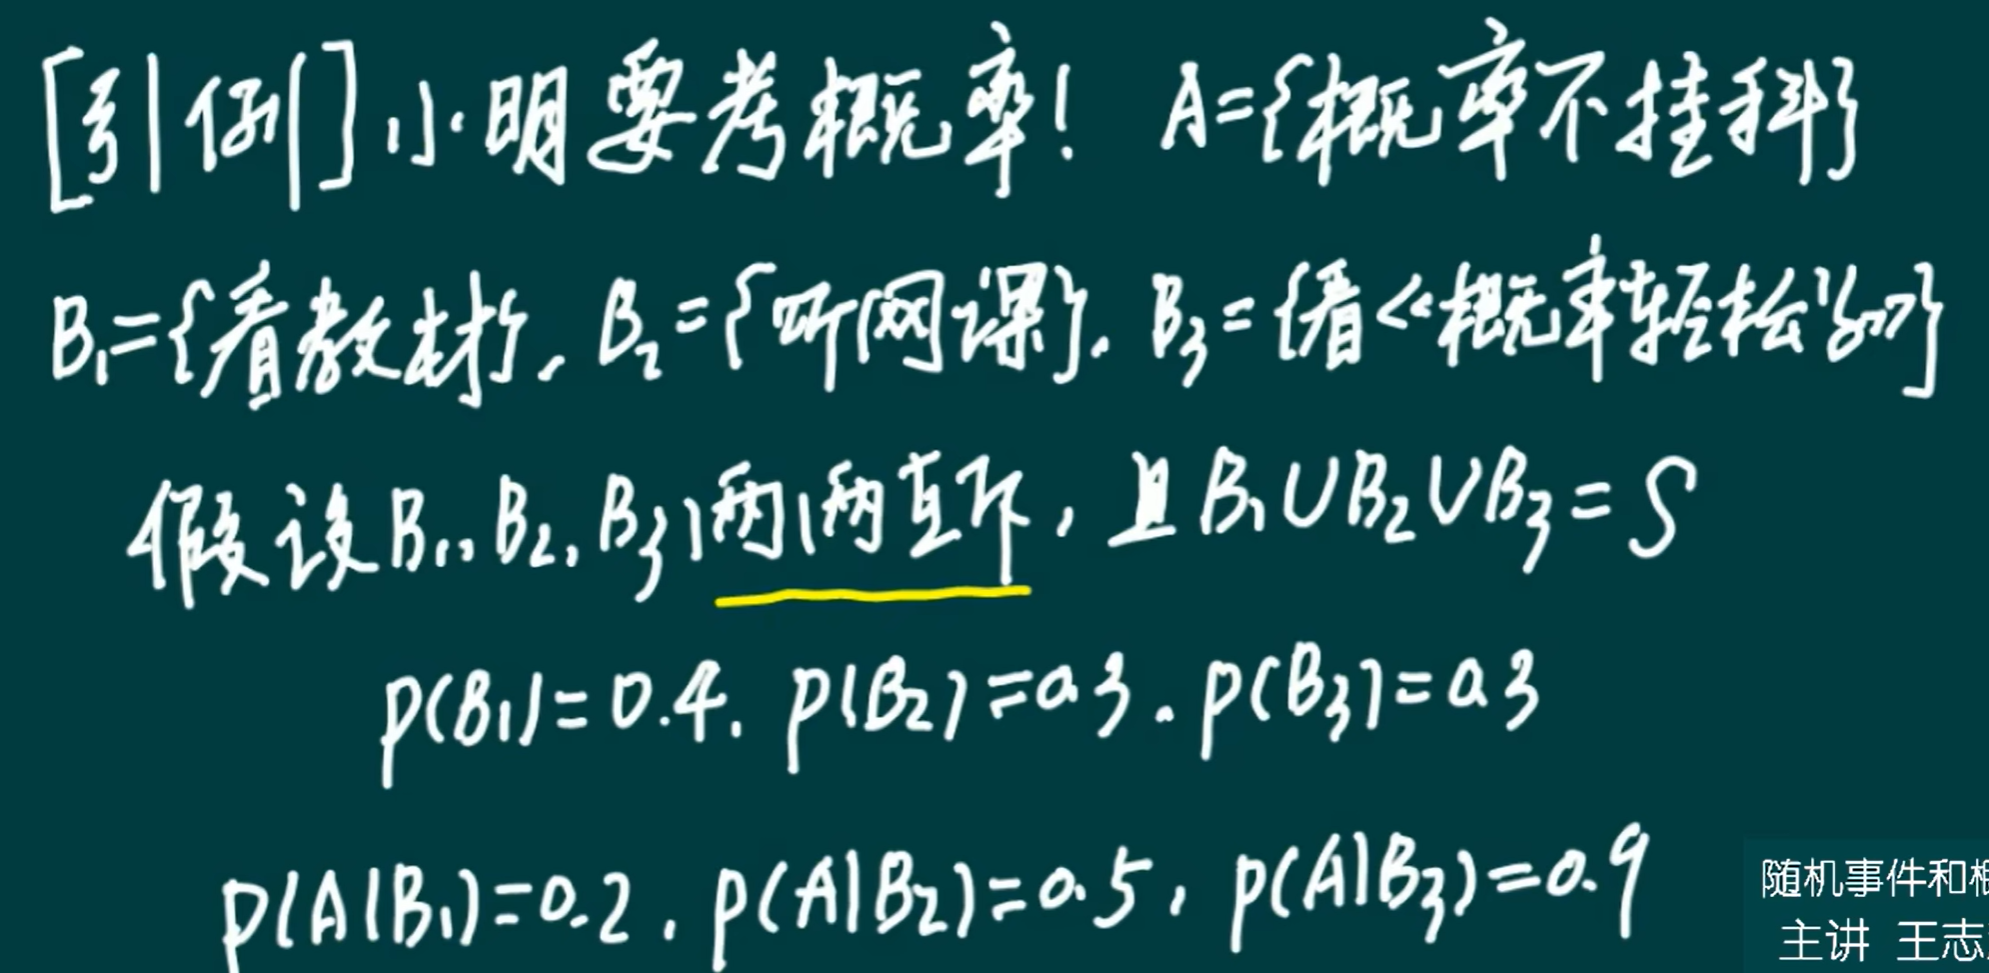 [引例] 小明要考概率! A={概率不挂科}
B₁={看教材}, B₂={听网课}, B₃={看《概率轻松学》}
假设B₁, B₂, B₃两两互斥, 且B₁∪B₂∪B₃=S
P(B₁)=0.4, P(B₂)=0.3. P(B₃)=0.3
P(A|B₁)=0.2, P(A|B₂)=0.5, P(A|B₃)=0.9
随机事件和
主讲 王志